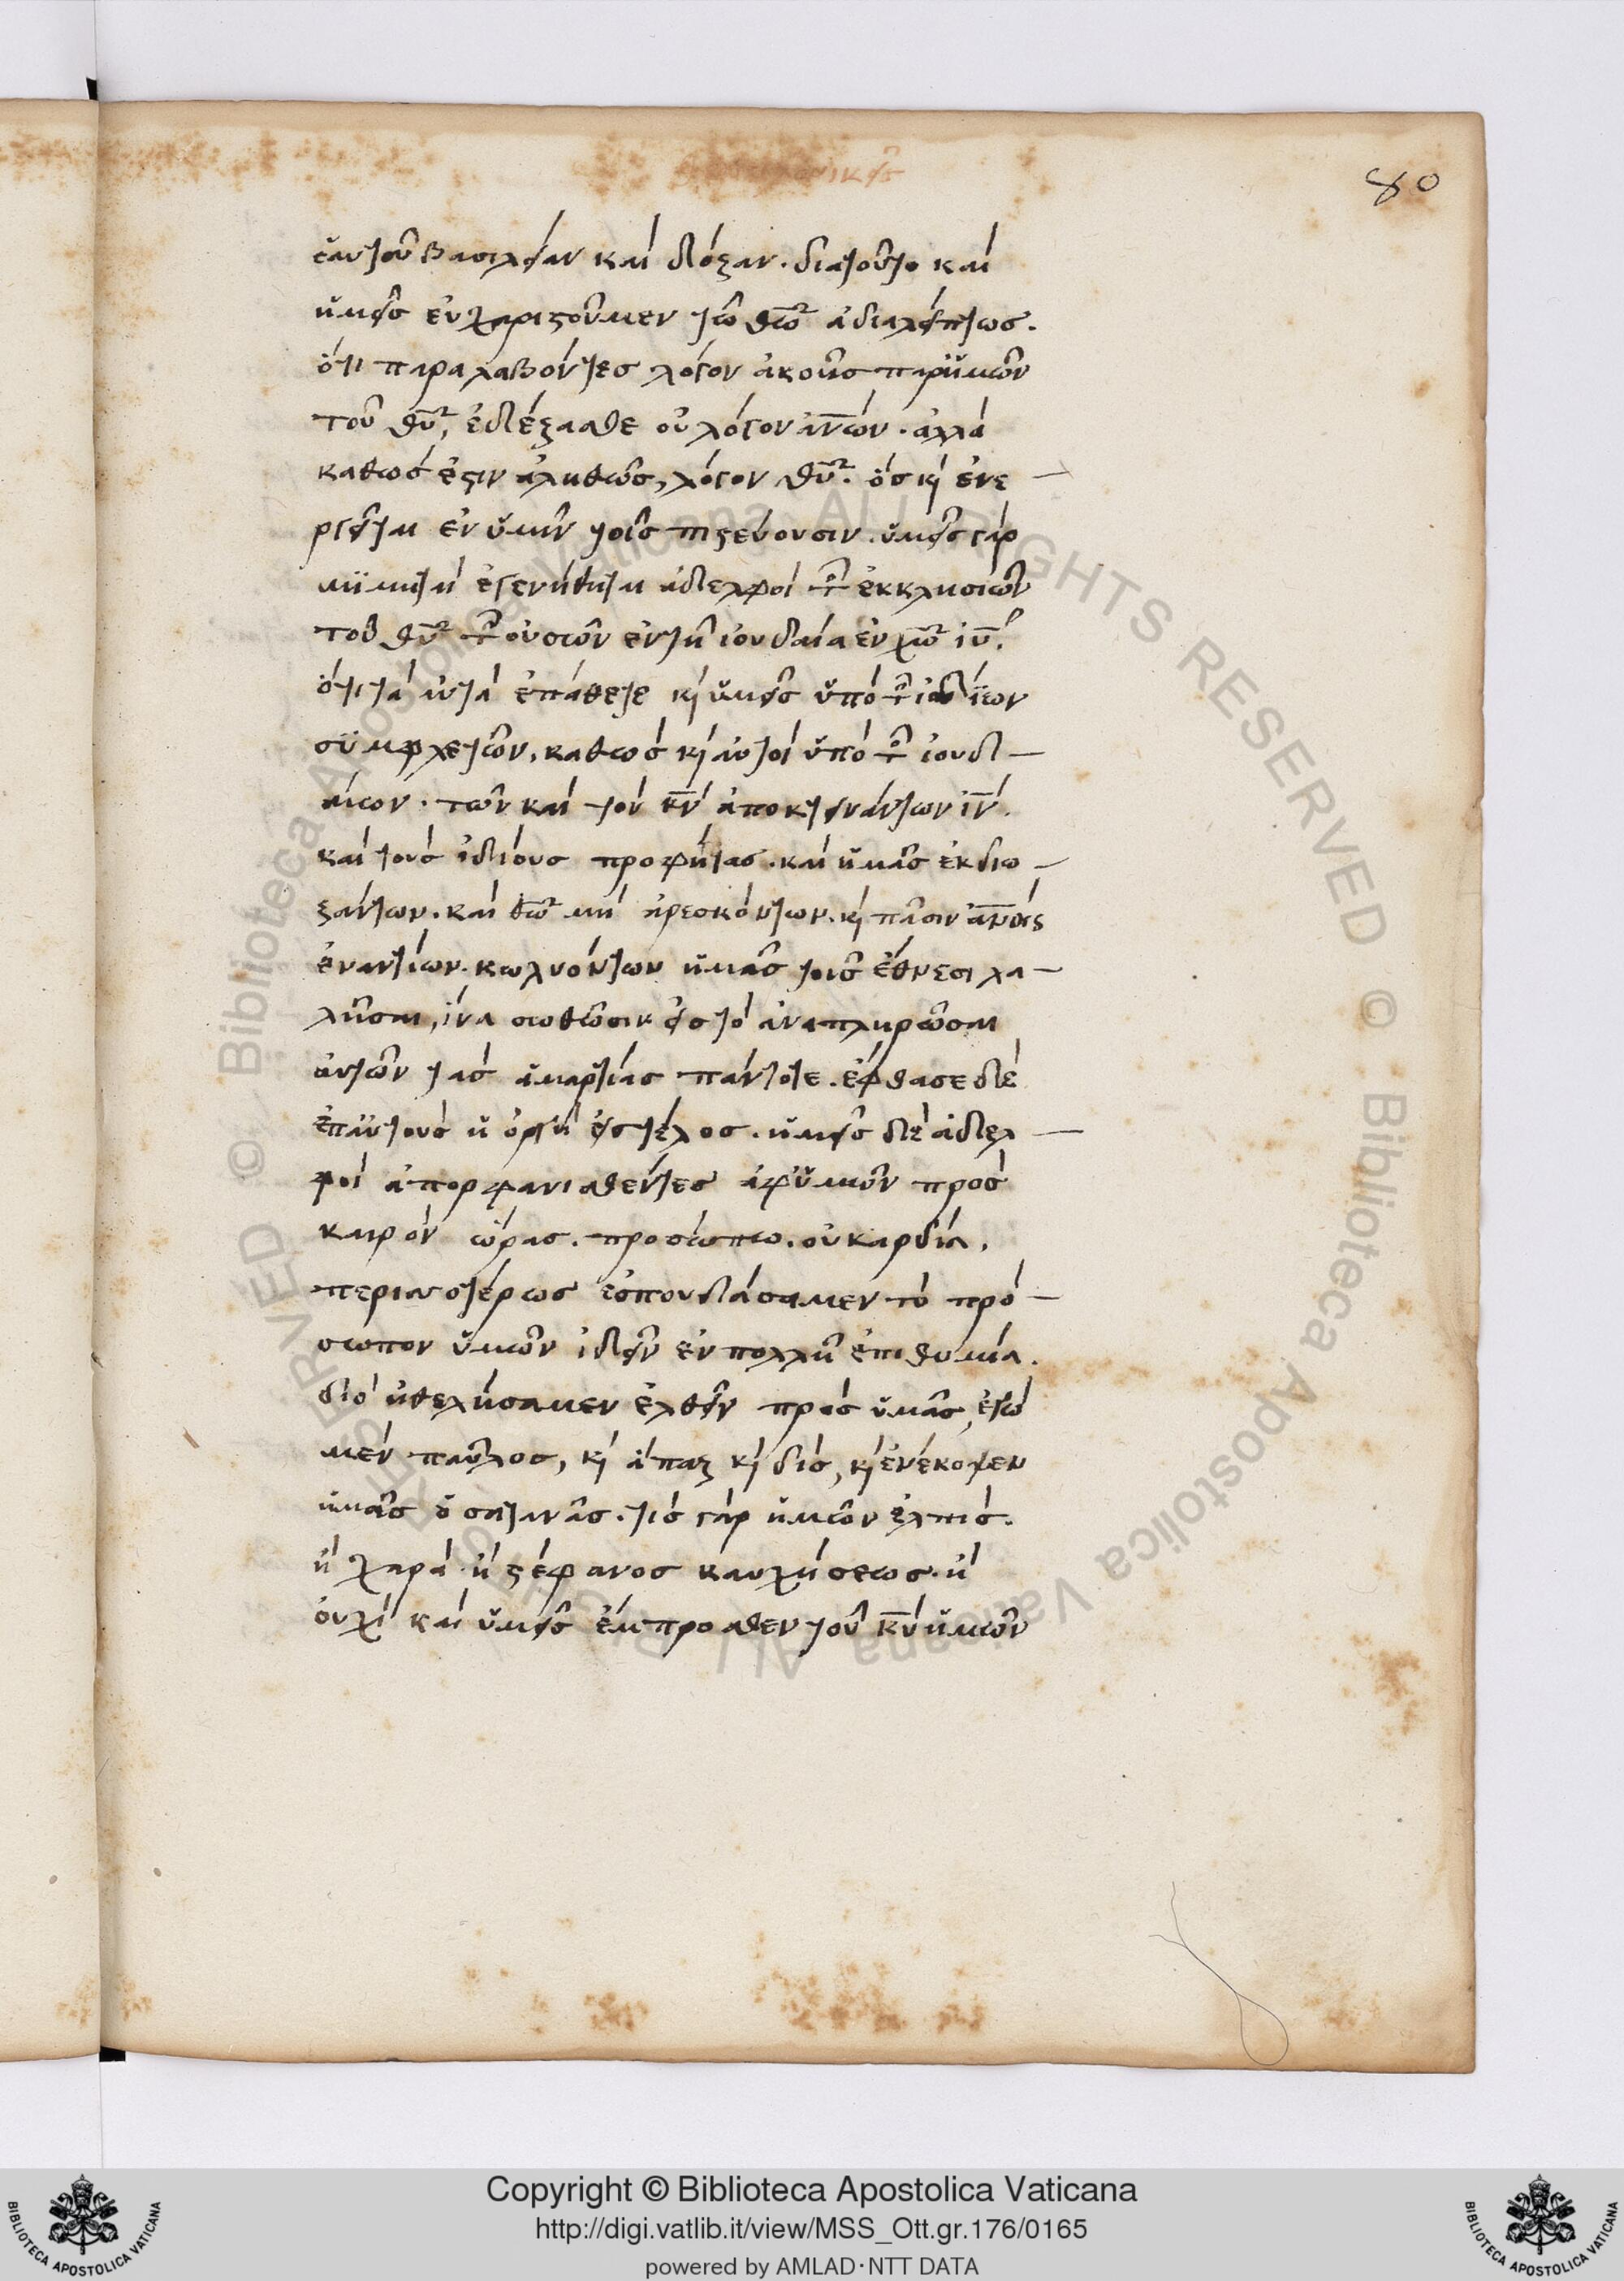 80
ἑαυτοῦ βασιλείαν καὶ δόξαν. διατοῦτο καὶ
ἡμεῖς εὐχαριστοῦμεν τῶ θῶ ἀδιαλείπτως.
ὅτι παραλαβόντες λόγον ἀκοῆς παρἡμῶν
τοῦ θῦ, ἐδέξασθε οὐ λόγον ἀνῶν. ἀλλὰ
καθὼς ἐστιν ἀληθῶς, λόγον θῦ. ὃς κὶ ἐνε
ργεῖται ἐν ὑμῖν τοῖς πιστεύουσιν. ὑμεῖς γὰρ
μϊμηταὶ ἐγενήθηται ἀδελφοὶ τῶν ἐκκλησιῶν
τοῦ θῦ τῶν οὐσῶν ἐν τῆ ἰουδαία ἐν χῶ ἰῦ.
ὅτι τὰ αὐτὰ ἐπάθετε κὶ ὑμεῖς ὑπὸ τῶν ἰδίων
συμφλετῶν, καθὼς κὶ αὐτοὶ ὑπὸ τῶν ἰουδ
αίων. τῶν καὶ τὸν κν ἀποκτεινάντων ἰν.
καὶ τοὺς ἰδίους προφήτας. καὶ ἡμᾶς ἐκδιω
ξάντων. καὶ θῶ μὴ ἀρεσκόντων. κὶ πᾶσιν ἀνοις
ἐναντίων. κωλυόντων ἡμᾶς τοῖς ἔθνεσι λα
λῆσαι, ἵνα σωθῶσιν εἰς τὸ ἀναπληρῶσαι
αὐτῶν τὰς ἁμαρτίας πάντοτε. ἔφθασε δὲ
ἐπαὐτοὺς ἡ ὀργὴ εἰς τέλος. ἡμεῖς δὲ ἀδελ
φοὶ ἀπορφανισθέντες ἀφὑμῶν πρὸς
καιρὸν ὥρας. προσώπω. οὐ καρδία.
περισσοτέρως ἐσπουδάσαμεν τὸ πρό
σωπον ὑμῶν ἰδεῖν ἐν πολλῆ ἐπιθυμία.
διὸ ἠθελήσαμεν ἐλθεῖν πρὸς ὑμᾶς, ἐγὼ
μὲν παῦλος, κὶ ἅπαξ κὶ δίς, κὶ ἐνέκοψεν
ἡμᾶς ὁ σατανᾶς. τίς γὰρ ἡμῶν ἐλπίς.
ἢ χαρὰ ἢ στέφανος καυχήσεως. ἢ
οὐχὶ καὶ ὑμεῖς ἔμπροσθεν τοῦ κυ ἡμῶν
Copyright © Biblioteca Apostolica Vaticana
http://digi.vatlib.it/view/MSS_Ott.gr.176/0165
powered by AMLAD·NTT DATA
BIBLIOTECA APOSTOLICA VATICANA
BIBLIOTECA APOSTOLICA VATICANA